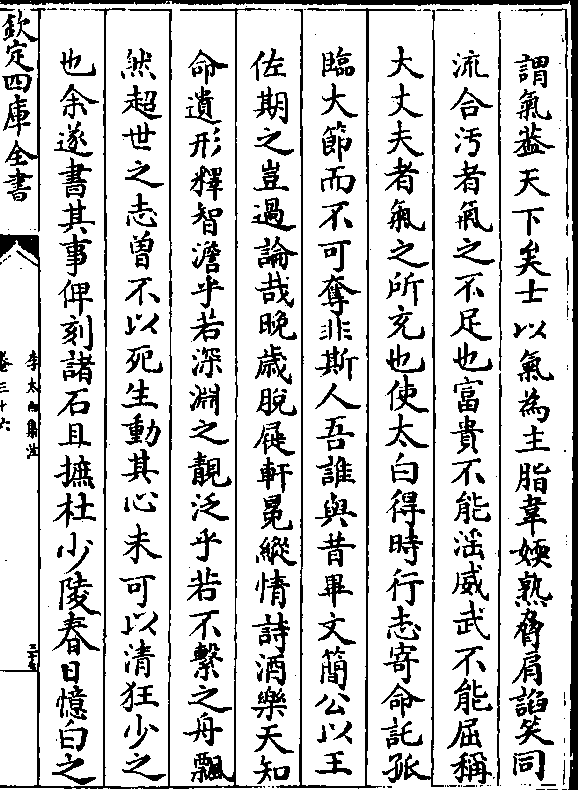 謂氣葢天下矣士以氣為主脂韋媆熟脅肩謟笑同
流合汚者氣之不足也富貴不能滛威武不能屈稱
大丈夫者氣之所充也使太白得時行志寄命託孤
臨大節而不可奪非斯人吾誰與昔畢文簡公以王
佐期之豈過論哉晚歲脫屣軒冕縱情詩酒樂天知
命遺形釋智澹乎若深淵之靚泛乎若不繫之舟飄
然超世之志曽不以死生動其心未可以清狂少之
也余遂書其事俾刻諸石且摭杜少陵春日憶白之
欽定四庫全書
李太白集注
卷三十六